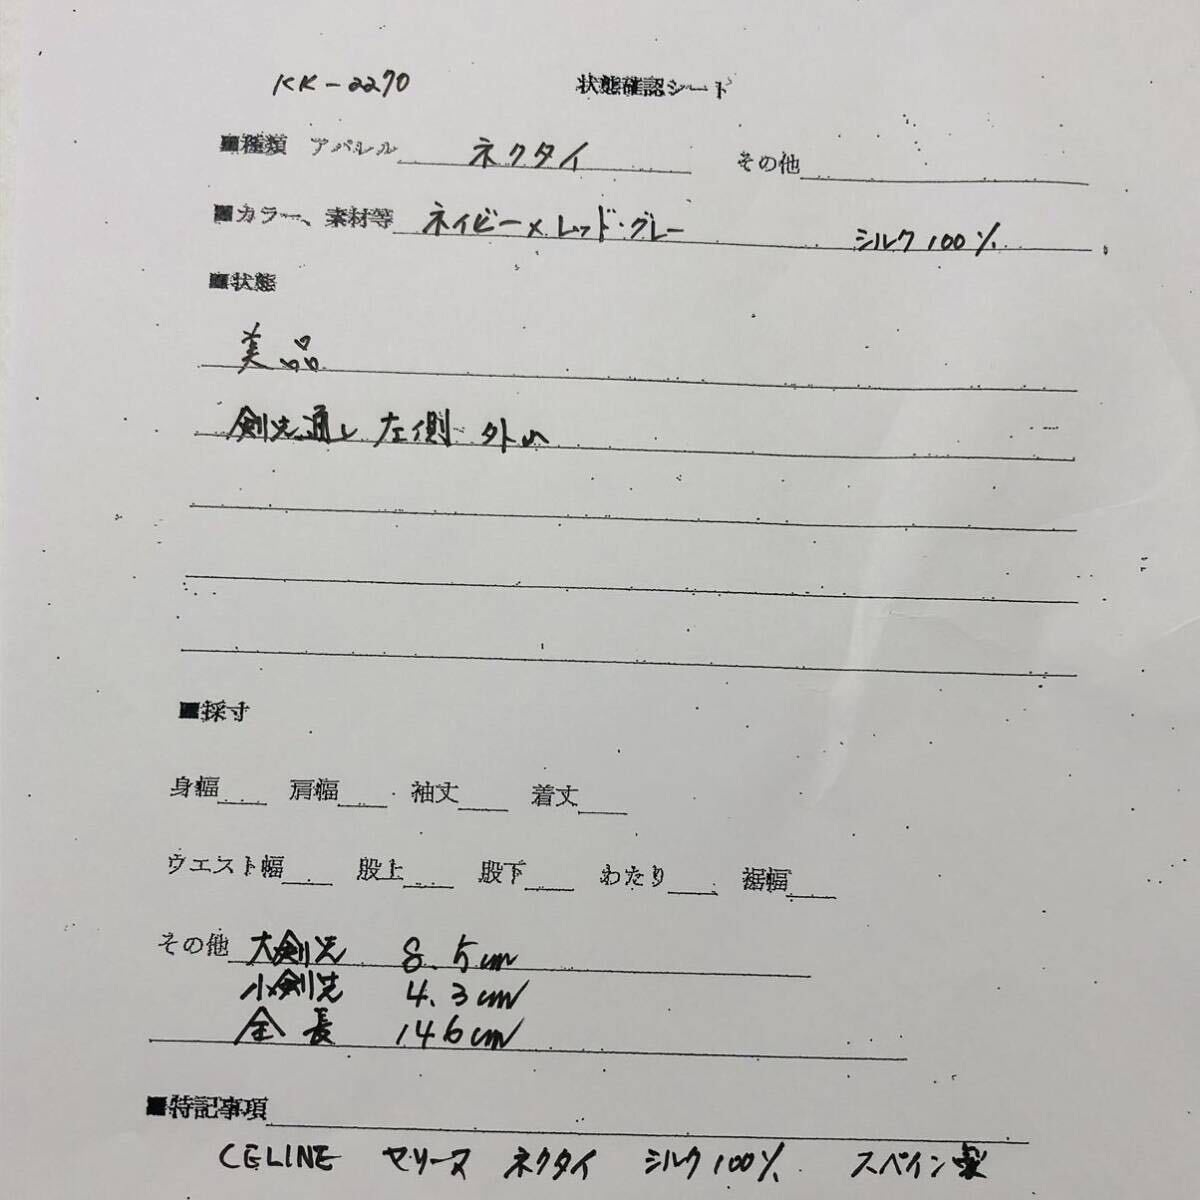 KK-2270 状態確認シート
■種類 アパレル ネクタイ その他
■カラー、素材等 ネイビー×レッド・グレー シルク100%
■状態
美品
剣先通し 左側 外れ
■採寸
身幅 肩幅 袖丈 着丈
ウエスト幅 股上 股下 わたり 裾幅
その他 大剣先 8.5cm
小剣先 4.3cm
全長 146cm
■特記事項
CELINE セリーヌ ネクタイ シルク100% スペイン製